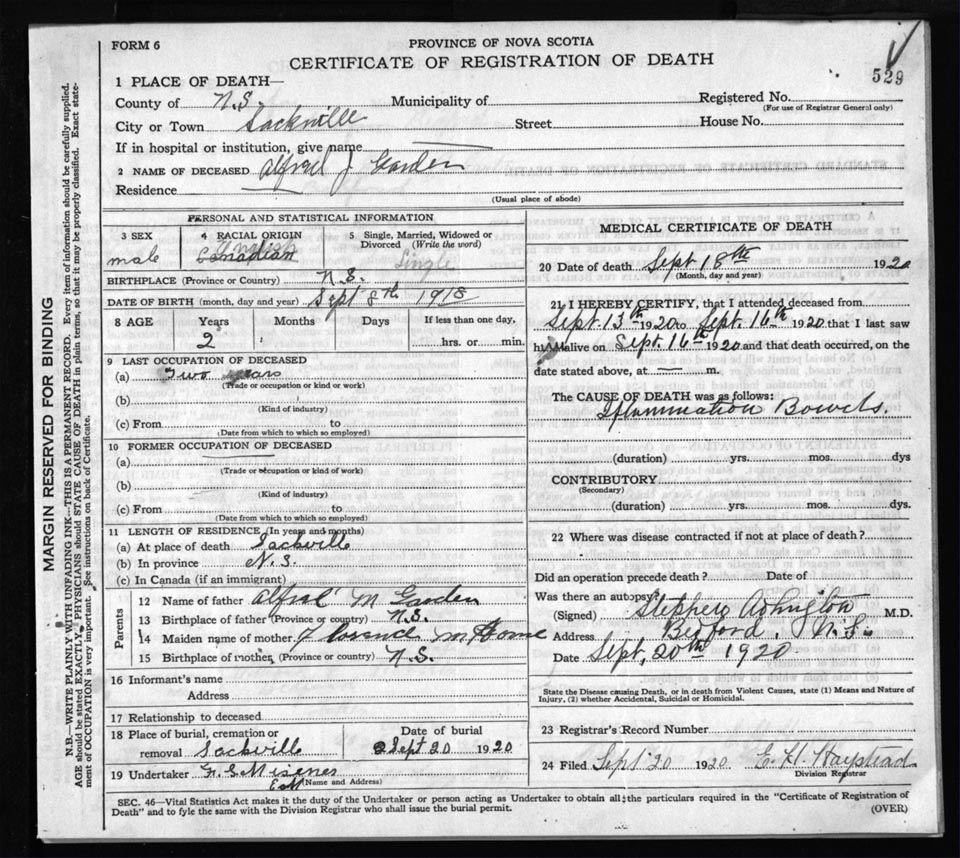 FORM 6
PROVINCE OF NOVA SCOTIA
CERTIFICATE OF REGISTRATION OF DEATH
529
1 PLACE OF DEATH—
County of N.S. Municipality of Registered No.
(For use of Registrar General only)
City or Town Sackville Street House No.
If in hospital or institution, give name
2 NAME OF DECEASED Alfred J Garden
Residence
(Usual place of abode)
PERSONAL AND STATISTICAL INFORMATION
3 SEX 4 RACIAL ORIGIN 5 Single, Married, Widowed or
Divorced (Write the word)
male English Canadian Single
BIRTHPLACE (Province or Country) N.S.
DATE OF BIRTH (month, day and year) Sept 8th 1918
8 AGE Years Months Days If less than one day,
2 hrs. or min.
9 LAST OCCUPATION OF DECEASED
(a) Two years
(Trade or occupation or kind or work)
(b)
(Kind of industry)
(c) From to
(Date from which to which so employed)
10 FORMER OCCUPATION OF DECEASED
(a)
(Trade or occupation or kind of work)
(b)
(Kind of industry)
(c) From to
(Date from which to which so employed)
11 LENGTH OF RESIDENCE (In years and months)
(a) At place of death Sackville
(b) In province N.S.
(c) In Canada (if an immigrant)
Parents
12 Name of father Alfred M Garden
13 Birthplace of father (Province or country) N.S.
14 Maiden name of mother Florence M
15 Birthplace of mother (Province or country) N.S.
16 Informant's name
Address
17 Relationship to deceased
18 Place of burial, cremation or Date of burial
removal Sackville Sept 20 1920
19 Undertaker
(Name and Address)
MEDICAL CERTIFICATE OF DEATH
20 Date of death Sept 18th 1920
(Month, day and year)
21 I HEREBY CERTIFY, that I attended deceased from
Sept. 13th 1920 to Sept. 16th 1920 that I last saw
him alive on Sept. 16th 1920 and that death occurred, on the
date stated above, at — m.
The CAUSE OF DEATH was as follows:
Iflammation Bowels.
(duration) yrs. mos. dys
CONTRIBUTORY
(Secondary)
(duration) yrs. mos. dys.
22 Where was disease contracted if not at place of death?
Did an operation precede death? Date of
Was there an autopsy?
(Signed) Stephen M.D.
Address Bedford, N.S.
Date Sept, 20th 1920
State the Disease causing Death, or in death from Violent Causes, state (1) Means and Nature of
Injury, (2) whether Accidental, Suicidal or Homicidal.
23 Registrar's Record Number
24 Filed Sept 20 1920 E. H.
Division Registrar
SEC. 46—Vital Statistics Act makes it the duty of the Undertaker or person acting as Undertaker to obtain all the particulars required in the "Certificate of Registration of
Death" and to fyle the same with the Division Registrar who shall issue the burial permit. (OVER)
MARGIN RESERVED FOR BINDING
N.B.—WRITE PLAINLY WITH UNFADING INK—THIS IS A PERMANENT RECORD. Every item of information should be carefully supplied.
AGE should be stated EXACTLY. PHYSICIANS should STATE CAUSE OF DEATH in plain terms, so that it may be properly classified. Exact state-
ment of OCCUPATION is very important. See instructions on back of Certificate.